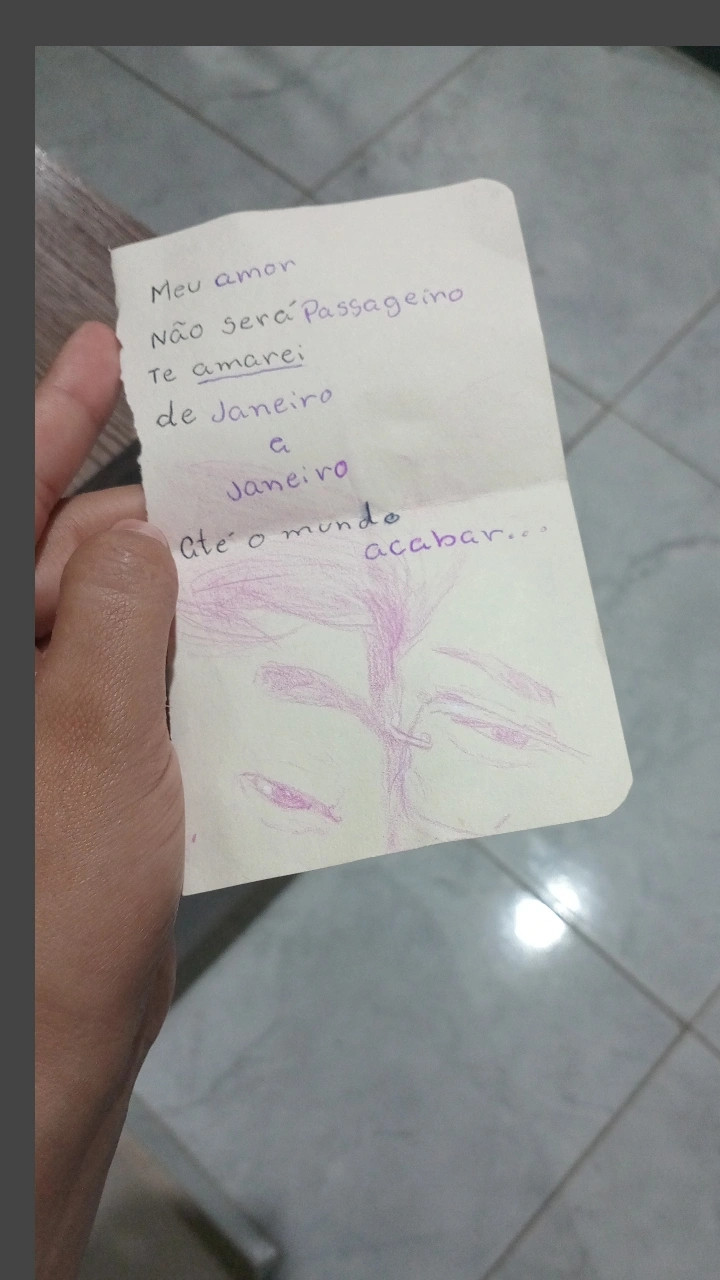 Meu amor
Não será Passageiro
Te amarei
de Janeiro
a
Janeiro
até o mundo
acabar...